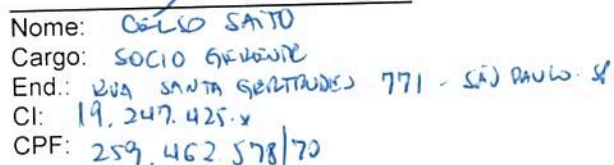 Nome: CELSO SAITO
Cargo: SOCIO GERENTE
End.: RUA SANTA GERTRUDES 771 - SÃO PAULO. SP
CI: 19.247.425.x
CPF: 259.462.578/70